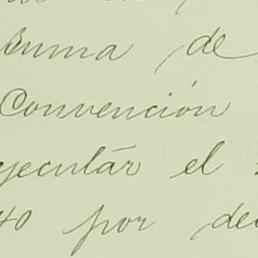 suma de
Convención
ejecutár el
40 por